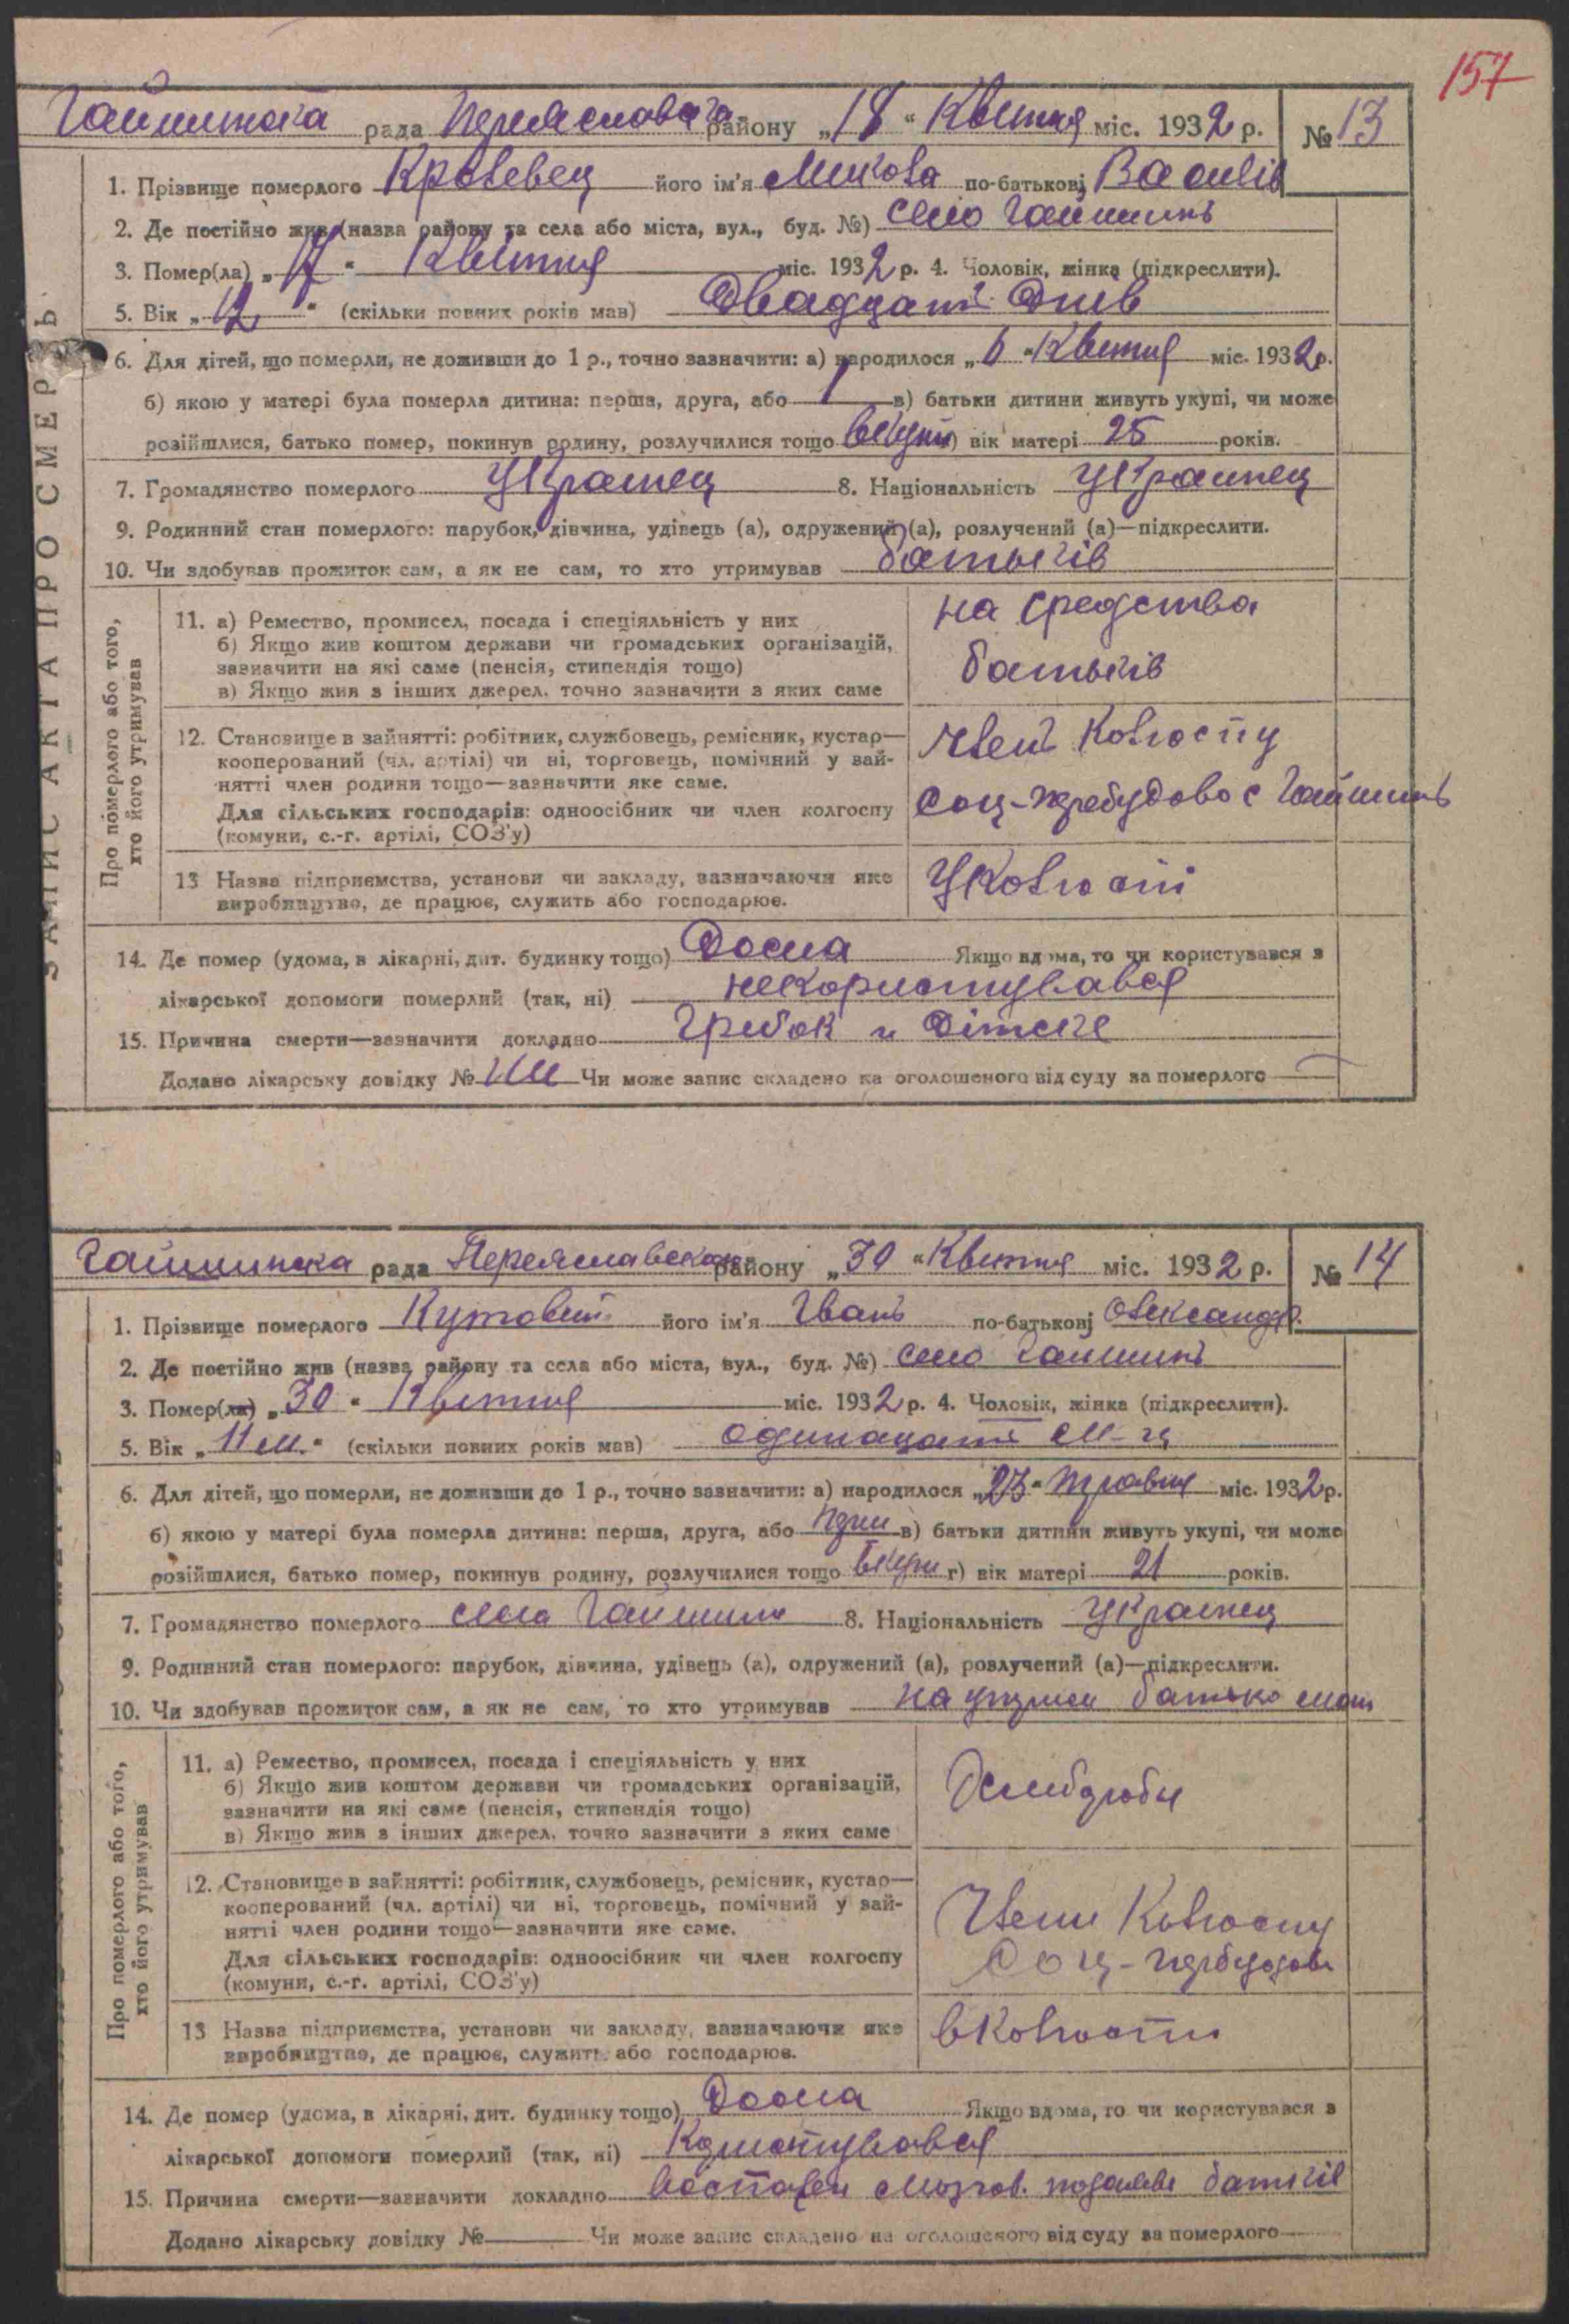 157
Гайшинська рада Переяславського району „18“ Квітня міс. 1932 р. № 13
1. Прізвище померлого його ім'я Микола по-батькові Василів
2. Де постійно жив (назва району та села або міста, вул., буд. №) село Гайшинь
3. Помер(ла) „17“ Квітня міс. 1932 р. 4. Чоловік, жінка (підкреслити).
5. Вік „12“ (скільки повних років мав) Двадцать Днів
6. Для дітей, що померли, не доживши до 1 р., точно зазначити: а) народилося „6“ Квітня міс. 1932 р.
б) якою у матері була померла дитина: перша, друга, або 1 в) батьки дитини живуть укупі, чи може
розійшлися, батько помер, покинув родину, розлучилися тощо вкупі г) вік матері 25 років.
7. Громадянство померлого Украінец 8. Національність Украинец
9. Родинний стан померлого: парубок, дівчина, удівець (а), одружений (а), розлучений (а)—підкреслити.
10. Чи здобував прожиток сам, а як не сам, то хто утримував батьків
ЗАПИС АКТА ПРО СМЕРТЬ
Про померлого або того, хто його утримував
11. а) Ремество, промисел, посада і спеціяльність у них
б) Якщо жив коштом держави чи громадських організацій,
зазначити на які саме (пенсія, стипендія тощо)
в) Якщо жив з інших джерел, точно зазначити з яких саме
на средства
батьків
12. Становище в зайнятті: робітник, службовець, ремісник, кустар—
кооперований (чл. артілі) чи ні, торговець, помічний у зай-
нятті член родини тощо—зазначити яке саме.
Для сільських господарів: одноосібник чи член колгоспу
(комуни, с.-г. артілі, СОЗ'у)
член Колгоспу
Соц-перебудова с Гайшинь
13 Назва підприємства, установи чи закладу, зазначаючи яке
виробництво, де працює, служить або господарює.
У Колгоспі
14. Де помер (удома, в лікарні, дит. будинку тощо) Дома Якщо вдома, то чи користувався з
лікарської допомоги померлий (так, ні) некористувався
15. Причина смерти—зазначити докладно
Додано лікарську довідку № Чи може запис складено на оголошеного від суду за померлого
Гайшинська рада Переяславского району „30“ Квітня міс. 1932 р. № 14
1. Прізвище померлого Кутовий його ім'я Іван по-батькові Олександр.
2. Де постійно жив (назва району та села або міста, вул., буд. №) село Гайшинь
3. Помер(ла) „30“ Квітня міс. 1932 р. 4. Чоловік, жінка (підкреслити).
5. Вік „11 м.“ (скільки повних років мав) одинацать м-ц
6. Для дітей, що померли, не доживши до 1 р., точно зазначити: а) народилося „23“ травня міс. 1932 р.
б) якою у матері була померла дитина: перша, друга, або в) батьки дитини живуть укупі, чи може
розійшлися, батько помер, покинув родину, розлучилися тощо вкупі г) вік матері 21 років.
7. Громадянство померлого села Гайшин 8. Національність Украинец
9. Родинний стан померлого: парубок, дівчина, удівець (а), одружений (а), розлучений (а)—підкреслити.
10. Чи здобував прожиток сам, а як не сам, то хто утримував на утрим батько мат
Про померлого або того, хто його утримував
11. а) Ремество, промисел, посада і спеціяльність у них
б) Якщо жив коштом держави чи громадських організацій,
зазначити на які саме (пенсія, стипендія тощо)
в) Якщо жив з інших джерел, точно зазначити з яких саме
12. Становище в зайнятті: робітник, службовець, ремісник, кустар—
кооперований (чл. артілі) чи ні, торговець, помічний у зай-
нятті член родини тощо—зазначити яке саме.
Для сільських господарів: одноосібник чи член колгоспу
(комуни, с.-г. артілі, СОЗ'у)
Член Колгоспу
Соц-перебудова
13 Назва підприємства, установи чи закладу, зазначаючи яке
виробництво, де працює, служить або господарює.
в Колгоспі
14. Де помер (удома, в лікарні, дит. будинку тощо) Дома Якщо вдома, то чи користувався з
лікарської допомоги померлий (так, ні) Користувався
15. Причина смерти—зазначити докладно батьків
Додано лікарську довідку № Чи може запис складено на оголошеного від суду за померлого